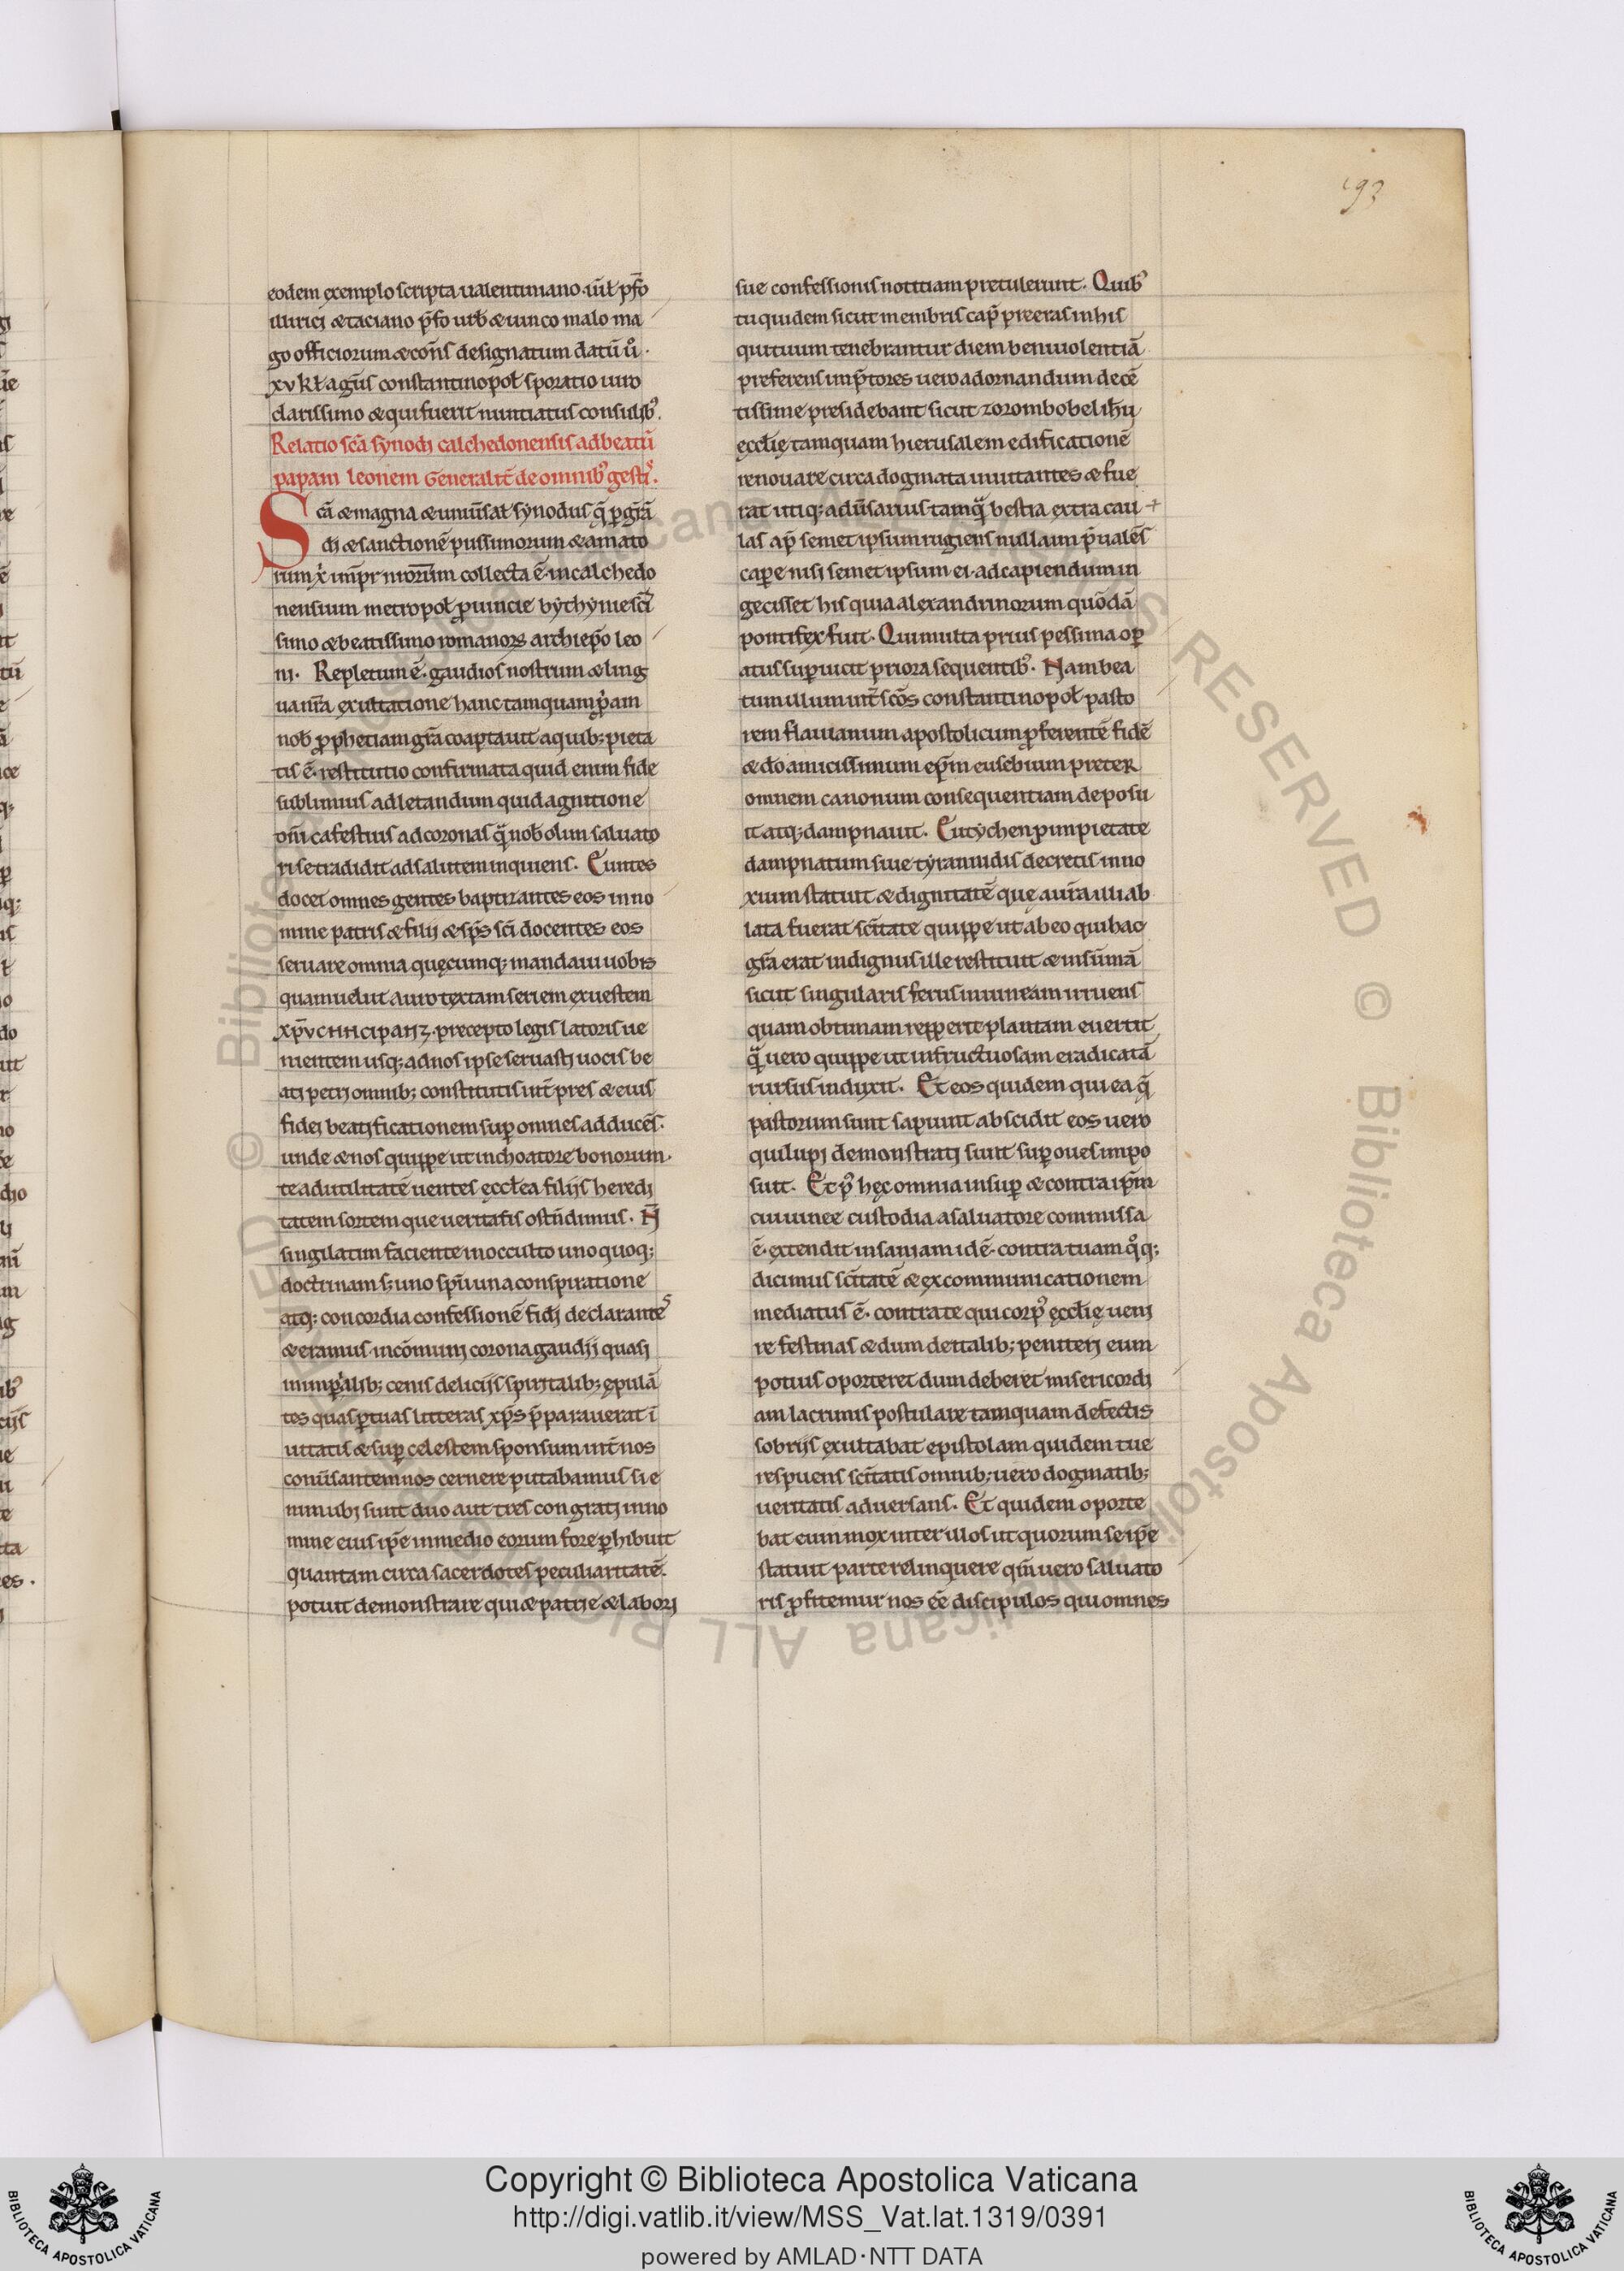 193
eodem exemplo scripta ualentiniano.uiř pfō
illirici & taciano p̄fo urb̄ & uinco malo ma
go officiorum & con̄s designatum datū ů.
xv kł agu̅s constantinopoł sporatio uiro
clarissimo & qui fuerit nuntiatus consulib⁹.
Relatio sc̄a synodi calchedonensis ad beatū
papam leonem Generalit̄ de omnib⁹ gestis.
Sc̄a & magna & uniu̅salˢ synodus q̄ p gr̄ā
di & sanctionē piissimorum & amato
rum x̄ imp̄r nr̄orum collecta ē. in calchedo
nensium metropoł ꝓuincie bẏthẏnie sc̄i
simo & beatissimo romanoꝝ archiep̄o leo
ni. Repletum ē. gaudio os nostrum & ling
ua nr̄a exultatione hanc tamquam ꝓp̄am
nob̄ ꝓphetiam gr̄a coaptauit a quib; pieta
tis ē. restitutio confirmata quid enim fide
sublimius ad letandum quid agnitione
om̄i cafestius ad coronas q̄ nob̄ olim saluato
ris & tradidit ad salutem inquiens. Euntes
docet omnes gentes baptizantes eos in no
mine patris & filii & sp̄s sc̄i docentes eos
seruare omnia quęcumq; mandaui uobis
quam uelut auro textam seriem ex uestem
precepto legis latoris ue
nientem usq; ad nos ipse seruasti uocis be
ati petri omnib; constitutis int̄ pres & eius
fidei beatificationem suꝑ omnes adducēs.
unde & nos quippe ut inchoatore bonorum.
te ad utilitatē uentes ęccłea filiis heredi
tatem sortem que ueritatis ostn̄dimus. N̄
singilatim faciente in occulto uno quoq;
doctrinam s; uno sp̄u una conspiratione
atq; concordia confessionē fidi declarantes
& eramus in cōmuni corona gaudii quasi
in imꝑialib; cenis deliciis spiritalib; epulā
tes quas ꝑ tuas litteras xp̄s p̄parauerat ī
uitatis & suꝑ celestem sponsum int̄ nos
conu̅santem nos cernere putabamus si e
nim ubi sunt duo aut tres congrati in no
mine eius ip̄e in medio eorum fore ꝑhibuit
quantam circa sacerdotes peculiaritatē.
potuit demonstrare qui & patrie & labori
sue confessionis notitiam pretulerunt. Quib⁹
tu quidem sicut membris cap̄ preeras in his
qui tuum tenebrantur diem beniuolentiā
preferens imp̄tores uero adornandum decē
tissime presidebant sicut zorombobel ih̄u
ęccłię tamquam hierusalem edificationē
renouare circa dogmata inuitantes & fue
rat utiq; adu̅sarius tamq̄ bestia extra cau
las ap̄ semet ipsum rugiens nullaum p̄ualēs
capere nisi semet ipsum ei. ad capiendum in
gecisset his quia alexandrinorum quōdā
pontifex fuit. Qui multa prius pessima oꝑ
atus suꝑuicit priora sequentib⁹. Nam bea
tum illum int̄ scōs constantinopoł pasto
rem flauianum apostolicum ꝓferentē fidē
& do amicissimum ep̄m eusebium preter
omnem canonum consequentiam deposu
it atq; dampnauit. Eutẏchen ꝑ impietate
dampnatum siue tẏrannidis decretis inno
xium statuit & dignitatē que a ur̄a illi ab
lata fuerat scītate quippe ut ab eo qui hac
gr̄a erat indignus ille restituit & in su̅mā
sicut singularis ferus in uineam irruens
quam obtimam repperit plantam euertit
q̄ uero quippe ut infructuosam eradicatā
rursus induxit. Et eos quidem qui ea q̄
pastorum sunt sapiunt abscidit eos uero
qui lupi demonstrati sunt suꝑ oues impo
suit. Et p⁹ hęc omnia insuꝑ & contra ip̄m
cui uinee custodia a saluatore commissa
ē. extendit insaniam id ē. contra tuam qͦq;
dicimus scītatē & excommunicationem
mediatus ē. contra te qui corp⁹ ęccłię ueni
re festinas & dum de talib; peniteri eum
potius oporteret dum deberet misericordi
am lacrimis postulare tamquam defectis
sobriis exultabat epistolam quidem tue
respuens scītatis omnib; uero dogmatib;
ueritatis aduersans. Et quidem oporte
bat eum mox inter illos ut quorum se ip̄e
statuit parte relinquere qm̄ uero saluato
ris ꝓfitemur nos eē discipulos qui omnes
Copyright © Biblioteca Apostolica Vaticana
http://digi.vatlib.it/view/MSS_Vat.lat.1319/0391
powered by AMLAD·NTT DATA
BIBLIOTECA APOSTOLICA VATICANA
BIBLIOTECA APOSTOLICA VATICANA
© Biblioteca Apostolica Vaticana ALL RIGHTS RESERVED
© Biblioteca Apostolica Vaticana ALL RIGHTS RESERVED